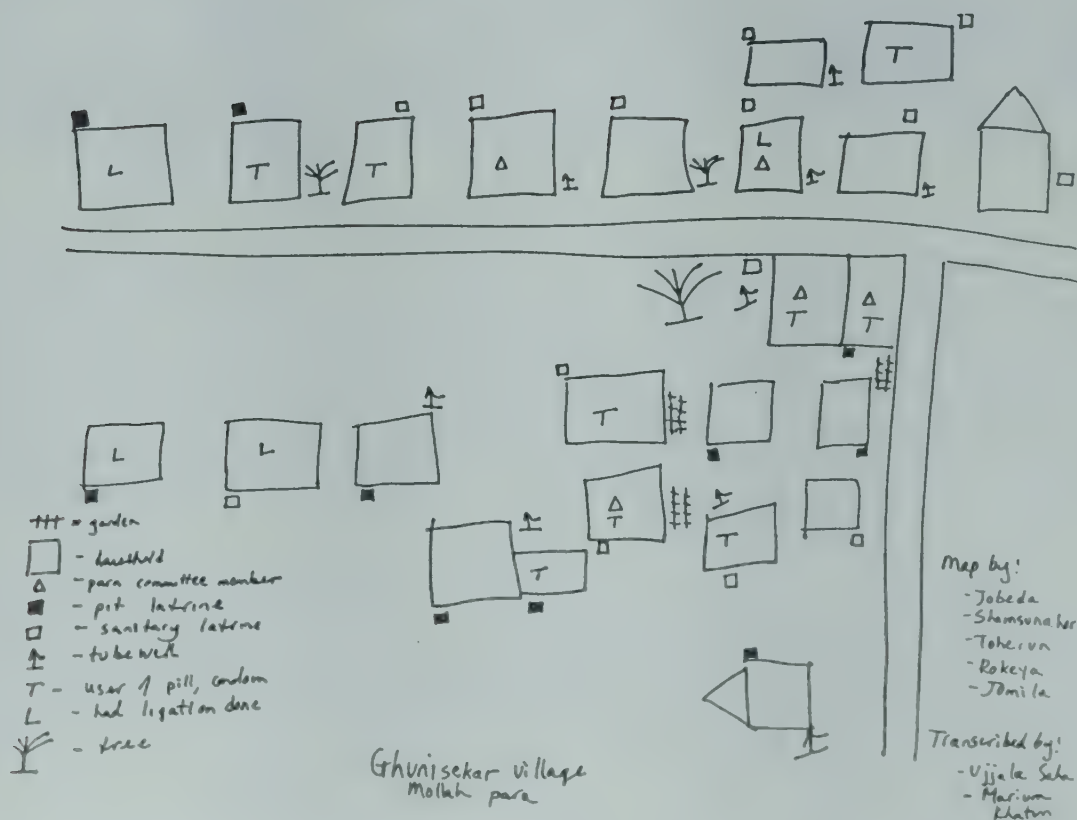 L
T
T
△
L
△
T
△
T
△
T
T
L
L
△
T
T
T
+++ = garden
- household
△ - para committee member
- pit latrine
- sanitary latrine
- tubewell
T - user of pill, condom
L - had ligation done
- tree
Ghunisekar village
Mollah para
Map by:
- Jobeda
- Shamsunahar
- Toherun
- Rokeya
- Jomila
Transcribed by:
- Ujjala Saha
- Marium
Khatun